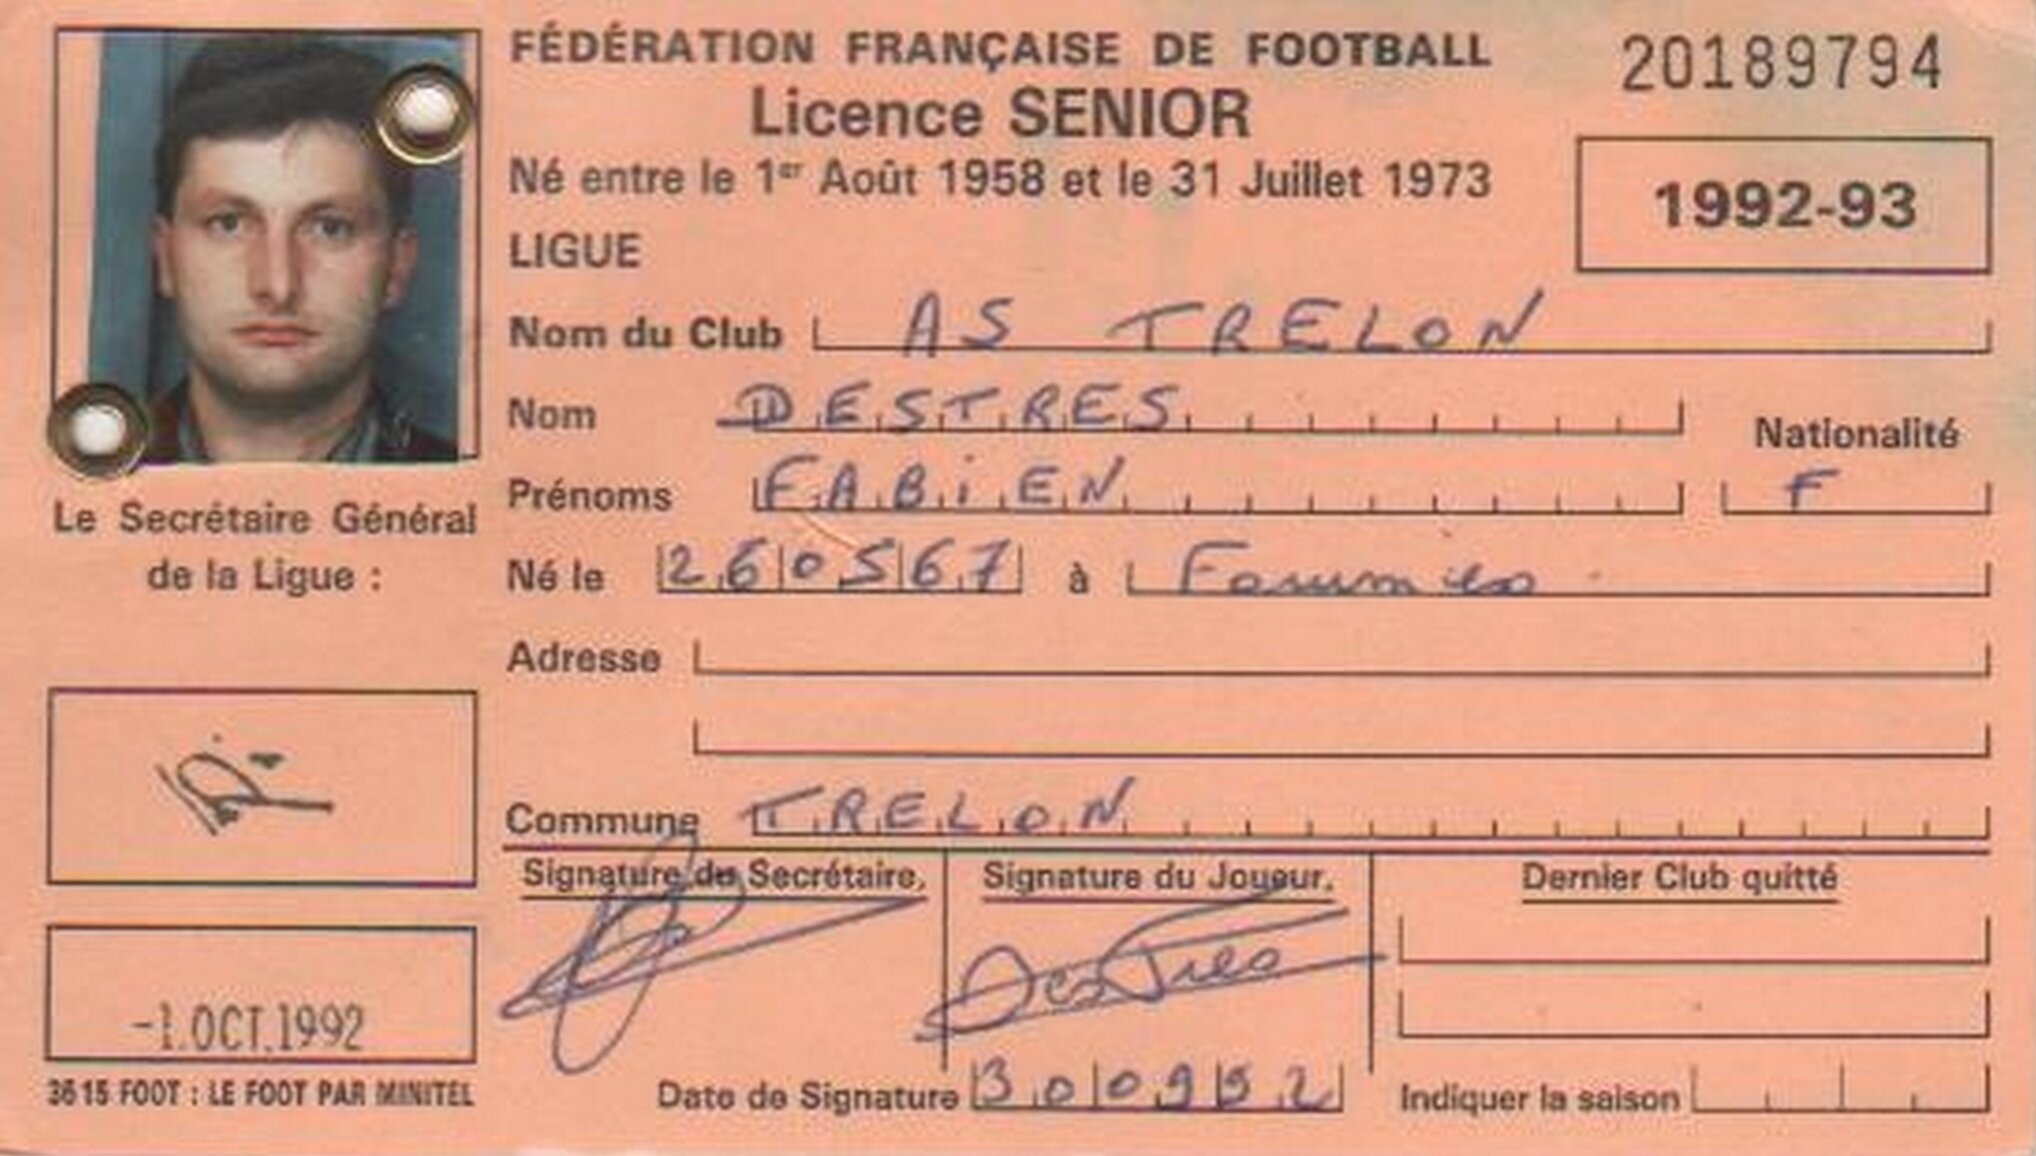 FÉDÉRATION FRANÇAISE DE FOOTBALL
20189794
Licence SENIOR
Né entre le 1er Août 1958 et le 31 Juillet 1973
1992-93
LIGUE
Nom du Club AS TRELON
Nom DESTRES
Nationalité
Prénoms FABiEN F
Le Secrétaire Général
de la Ligue :
Né le 260567 à Fourmies
Adresse
Commune TRELON
Signature du Secrétaire,
Signature du Joueur,
Destres
Dernier Club quitté
-1.OCT.1992
3615 FOOT : LE FOOT PAR MINITEL
Date de Signature 300992
Indiquer la saison